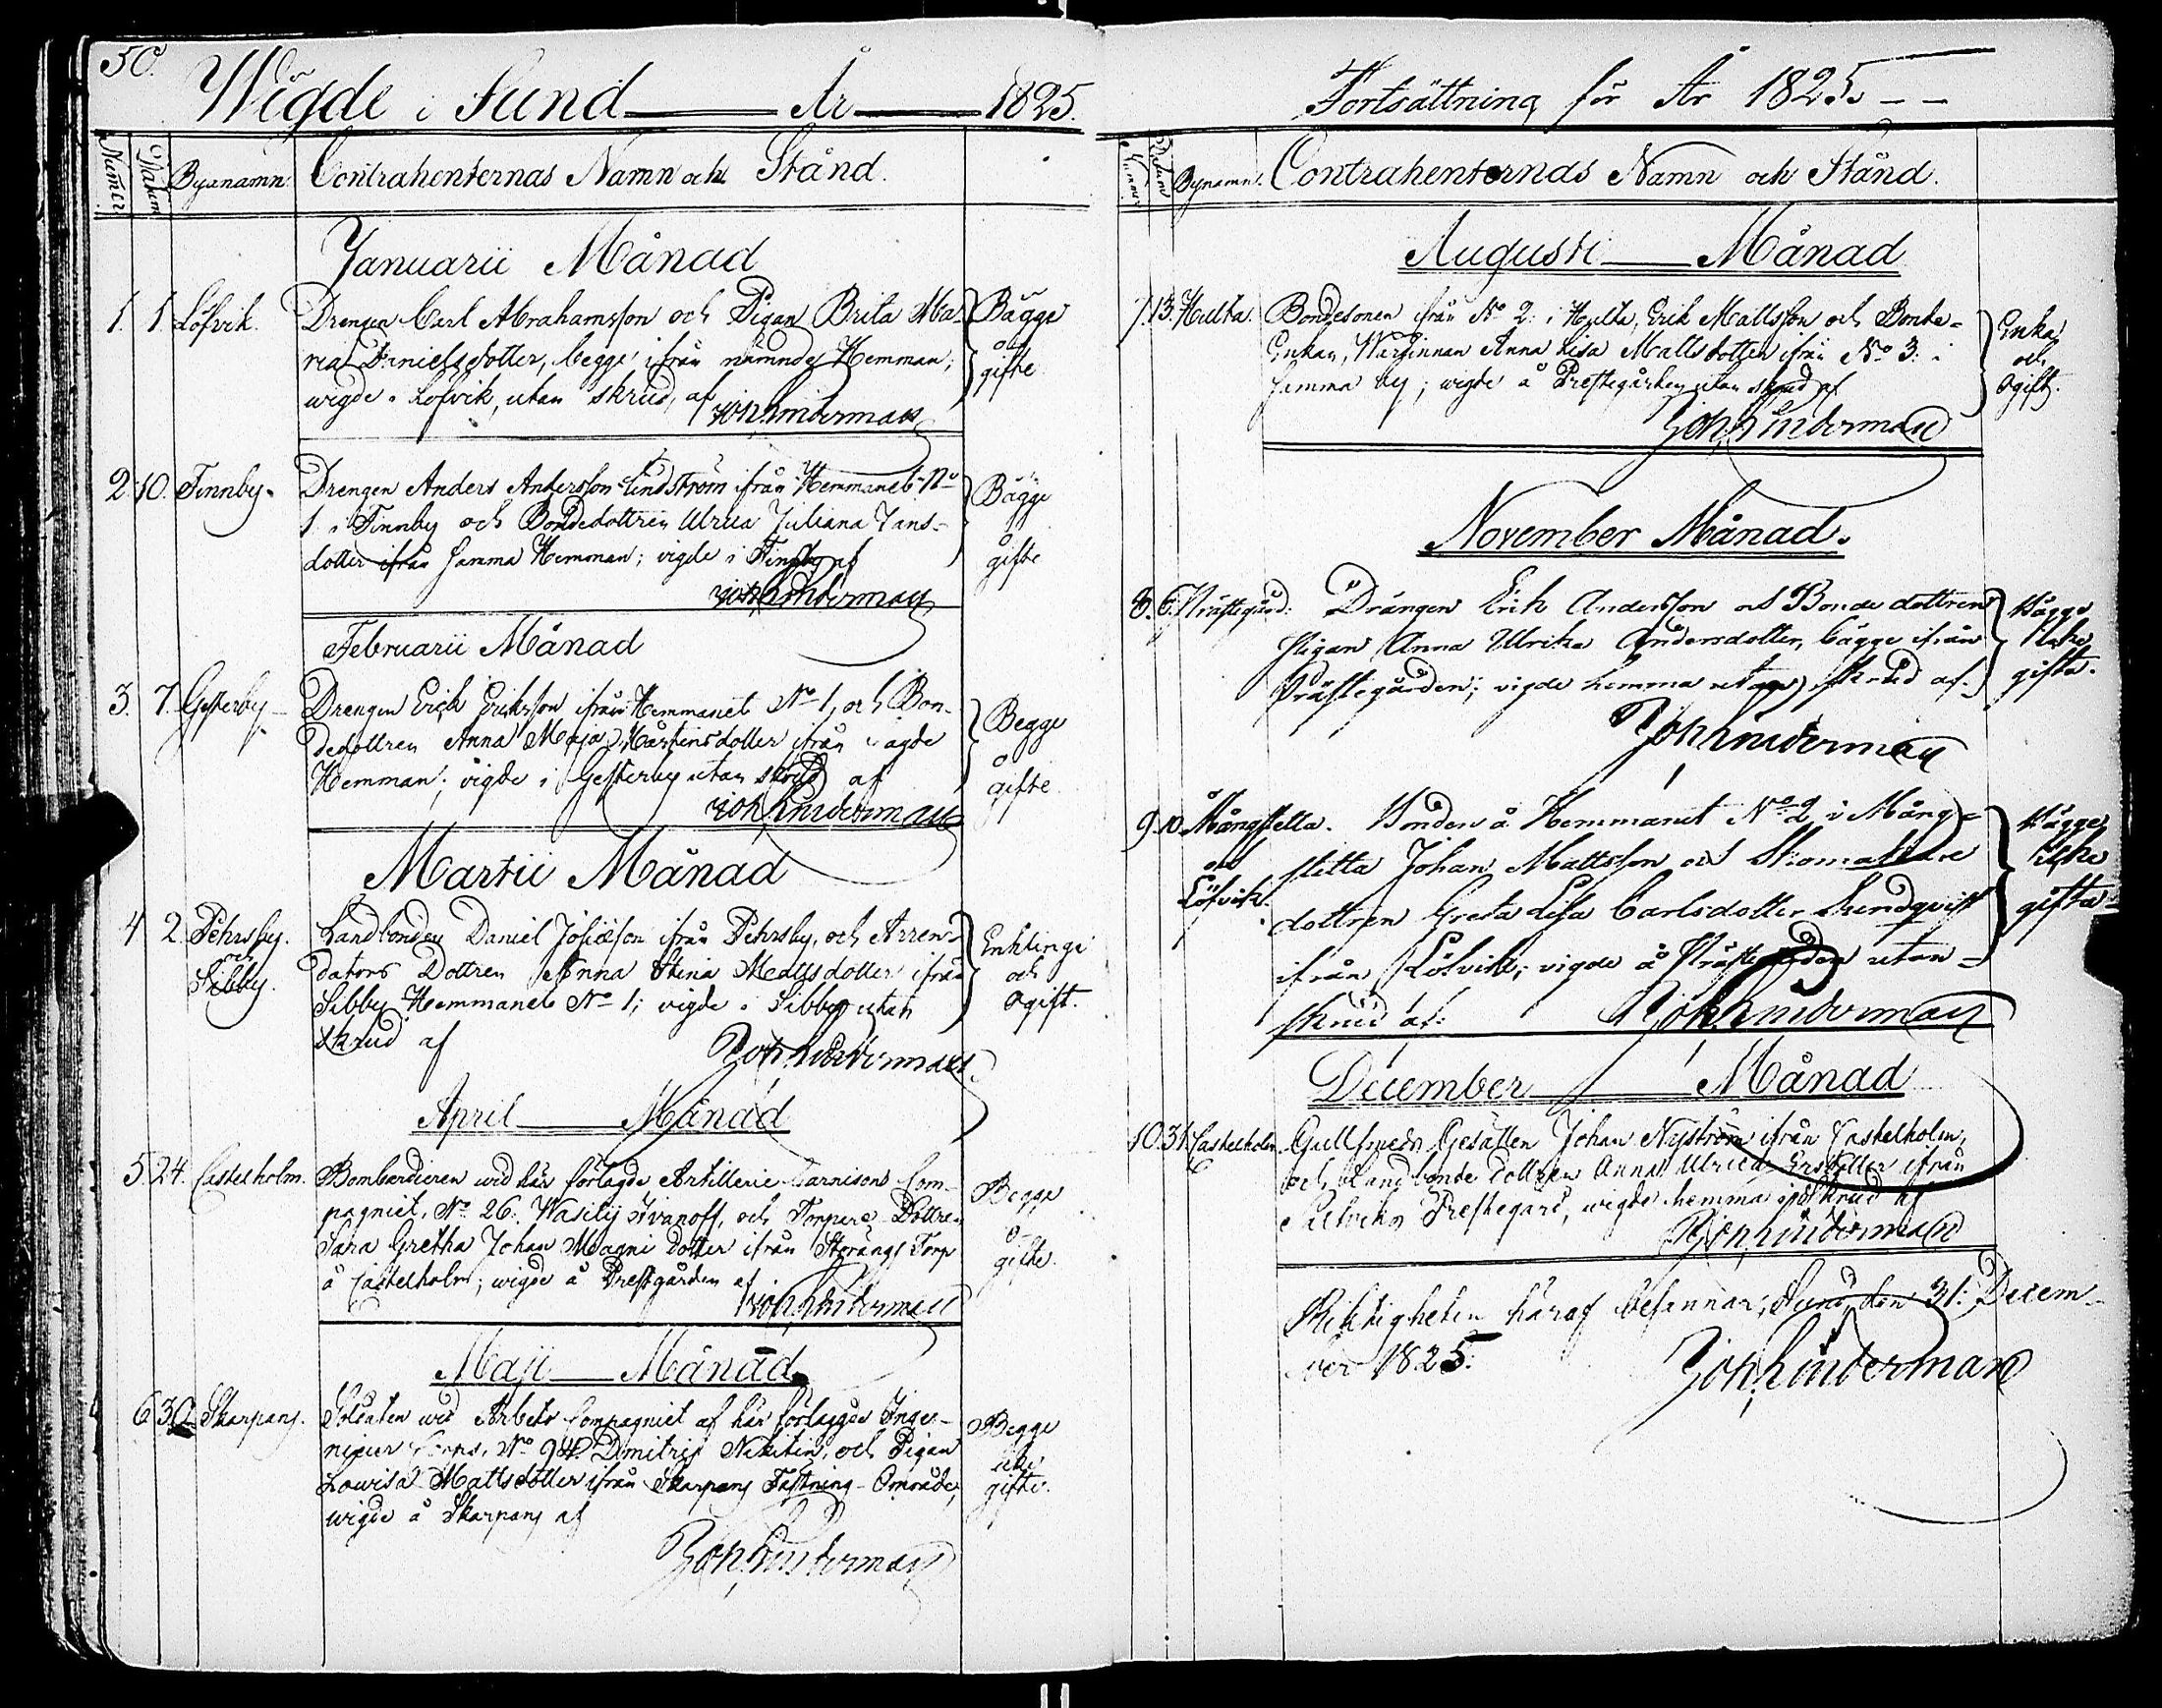 50.
Wigde i Sund År 1825.
Numer Datum Byanamn. Contrahenternas Namn och Stånd.
Januarii Månad
1. 1. Löfvik. Drengen Carl Abrahamsson och Pigan Brita Ma- Bägge
ria Danielsdotter, begge ifrån nämnde Hemman; o-
wigde i Löfvik, utan skrud, af gifte
Joh. Linderman
2. 10. Finnby. Drengen Anders Andersson Lindström ifrån Hemmanet No Bägge
1. i Finnby och Bondedottren Ulrica Juliana Jans- o
dotter ifrån samma Hemman; vigde i Finnby af gifte
Joh. Linderman
Februarii Månad
3. 7. Gesterby Drengen Erick Eriksson ifrån Hemmanet No 1, och Bon- Begge
dedottren Anna Maja Mårtensdotter ifrån sagde o
Hemman; vigde i Gesterby utan skrud af gifte.
Joh. Linderman
Martii Månad
4 2. Pehrsby. Landbonden Daniel Josiæson ifrån Pehrsby, och Arren- Enklinge
och dators Dottren Anna Stina Mattsdotter ifrån och
Sibby. Sibby Hemmanet No 1; vigde i Sibby utan ogift.
skrud af Joh. Linderman
April Månad
5. 24. Castelholm. Bombardieren wid här förlagde Artillerie Garnisons Com- Begge
pagniet, No 26. Wasilij Ivanoff, och Torpare Dottren o-
Sara Gretha Johan Magni Dotter ifrån Storängs Torp gifte.
å Castelholm; wigde å Prestgården af
Joh. Linderman
Maji Månad.
6 30 Skarpans. Soldaten wid Arbets Compagniet af här förlaggde Inge- Begge
nieur Corps, No 94. Dmitrij Nikitin, och Pigan icke
Lowisa Mattsdotter ifrån Skarpans Fästning-Område, gifte.
wigde å Skarpans af
Joh. Linderman
Fortsättning för År 1825.
Numer Datum Bynamn. Contrahenternas Namn och Stånd.
Augusti Månad
7. 13. Hulta. Bondesonen ifrån No 2. i Hulta, Erik Mattsson och Bonde- Enka
Enkan, Wärdinnan Anna Lisa Mattsdotter ifrån No 3. i och
samma by; wigde å Prestegården utan skrud af ogift.
Joh. Linderman
November Månad.
8. 6. Prästegård. Drängen Erik Andersson och Bonde dottren Bägge
Pigan Anna Ulrika Andersdotter, bägge ifrån icke
Prästegården; vigde hemma utan skrud af. gifta.
Joh. Linderman
9. 10. Mångstekta. Bonden å Hemmanet No 2 i Mång- Bägge
och stekta Johan Mattsson och Skomakare icke
Löfvik. dottren Greta Lisa Carlsdotter Sundqvist gifta
ifrån Löfvik; vigde å Prästegården utan
skrud af: Joh. Linderman
December Månad
10. 31. Castelholm Gullsmeds Gesällen Johan Nyström ifrån Castelholm,
och Landbonde dottren Anna Ulrica Ersdotter ifrån
Prestegård, wigde hemma i skrud af
Joh. Linderman
Riktigheten häraf besannar; Sund den 31: Decem-
ber 1825:
Joh. Linderman